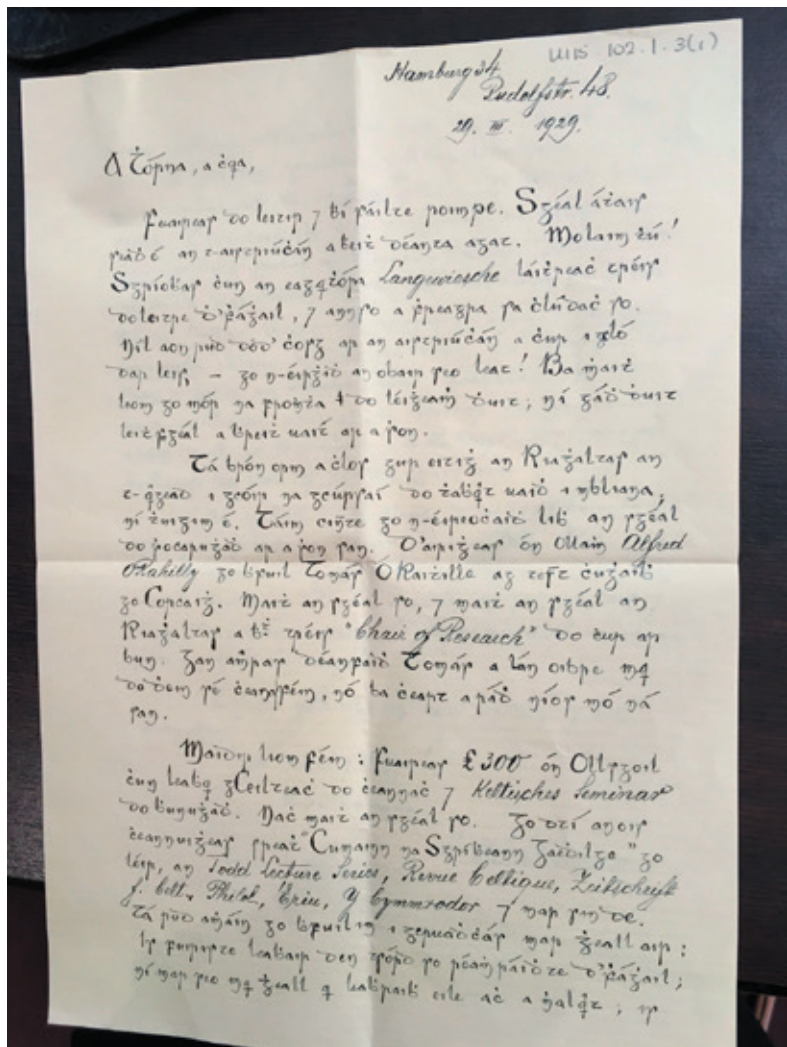 UIB 102.1.3(1)
Hamburg 34
Rudolfstr. 48.
29. III. 1929.
A Ṫórna, a ċara,
Fuaireas do leitir ⁊ bí fáilte roimpe. Sgéal átais
é an t-aistriúċán a beiṫ déanta agat. Molaim ṫú!
Sgríobas ċun an eagarṫóra Langewiesche láiṫreaċ tréis
do leitre d'ḟáġail, ⁊ annso a ḟreagra sa ċlúdaċ so.
Níl aon rud dod' ċosg ar an aistriúċán a ċur i gló
dar leis, – go n-éirġiḋ an obair seo leat! Ba ṁaiṫ
liom go mór na fromṫa do léiġeaṁ ḋuit; ní gáḋ ḋuit
leiṫsgéal a ḃreiṫ uait ar a son.
Tá brón orm a ċlos gur eitiġ an Riaġaltas an
t-airgead i gcóir na gcúrsaí do ṫaḃairt uaiḋ i mbliana,
ní ṫuigim é. Táim cinnte go n-éireoċaiḋ liḃ an sgéal
do ṡocaruġaḋ ar a son san. D'airiġeas ón Ollaṁ Alfred
O'Rahilly go ḃfuil Tomás Ó Raiṫille ag teaċt ċuġaiḃ
go Corcaiġ. Maiṫ an sgéal so, ⁊ maiṫ an sgéal an
Riaġaltas a ḃeiṫ tréis "Chair of Research" do ċur ar
bun. Gan aṁras déanfaiḋ Tomás a lán oibre mar
do ḋein sé ċeana féin, nó ba ċeart a ráḋ níos mó ná
san.
Maidir liom féin: Fuaireas £300 ón Ollsgoil
ċun leaḃar gCeilteaċ do ċeannaċ ⁊ Keltisches Seminar
do ḃunuġaḋ. Naċ maiṫ an sgéal so. Go dtí anois
ċeannuiġeas sreaṫ "Cumainn na Sgríbeann Gaeḋilge" go
léir, an Todd Lecture Series, Revue Celtique, Zeitschrift
f. celt. Philol., Ériu, Y Cymmrodor ⁊ mar sin de.
Tá rud aṁáin go ḃfuilim i gcruaḋċás mar ġeall air:
Is furuiste leaḃair den tsórd so réaṁráiḋte d'ḟáġail;
ní mar seo mar ġeall ar leaḃraiḃ eile aċ a ṁalairt; is